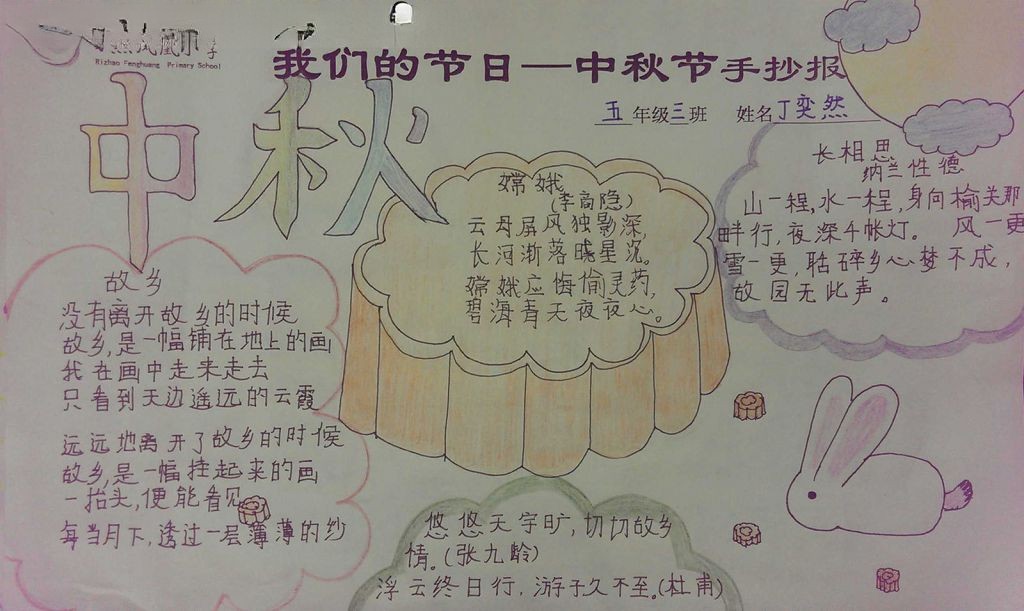 Rizhao Fenghuang Primary School
我们的节日—中秋节手抄报
五年级三班 姓名丁奕然
中秋
故乡
没有离开故乡的时候
故乡,是一幅铺在地上的画
我在画中走来走去
只看到天边遥远的云霞
远远地离开了故乡的时候
故乡,是一幅挂起来的画
一抬头,便能看见
每当月下,透过一层薄薄的纱
嫦娥
(李商隐)
云母屏风独影深,
长河渐落晓星沉。
嫦娥应悔偷灵药,
碧海青天夜夜心。
长相思
纳兰性德
山一程,水一程,身向榆关那
畔行,夜深千帐灯。 风一更
雪一更,聒碎乡心梦不成,
故园无此声。
悠悠天宇旷,切切故乡
情。(张九龄)
浮云终日行,游子久不至。(杜甫)